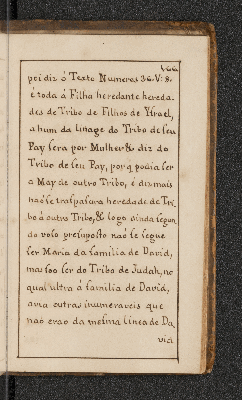 poi diz ó Texto Numeros 36. V: 8.
é toda á Filha heredante hereda-
des de Tribo de Filhos de Ysrael,
a hum da linage do Tribo de seu
Pay sera por Mulher & diz do
Tribo de seu Pay, porq̃ podia ser
a May de outro Tribo, é diz mais
naõ se traspasara heredade de Tri-
bo á outro Tribo, & logo ainda segun-
do voso presuposto naõ se segue
ser Maria da familia de David,
mas soo ser do Tribo de Judah, no
qual ultra á familia de David,
avia outras inumeraveis que
naõ eraõ da mesma linea de Da
vid